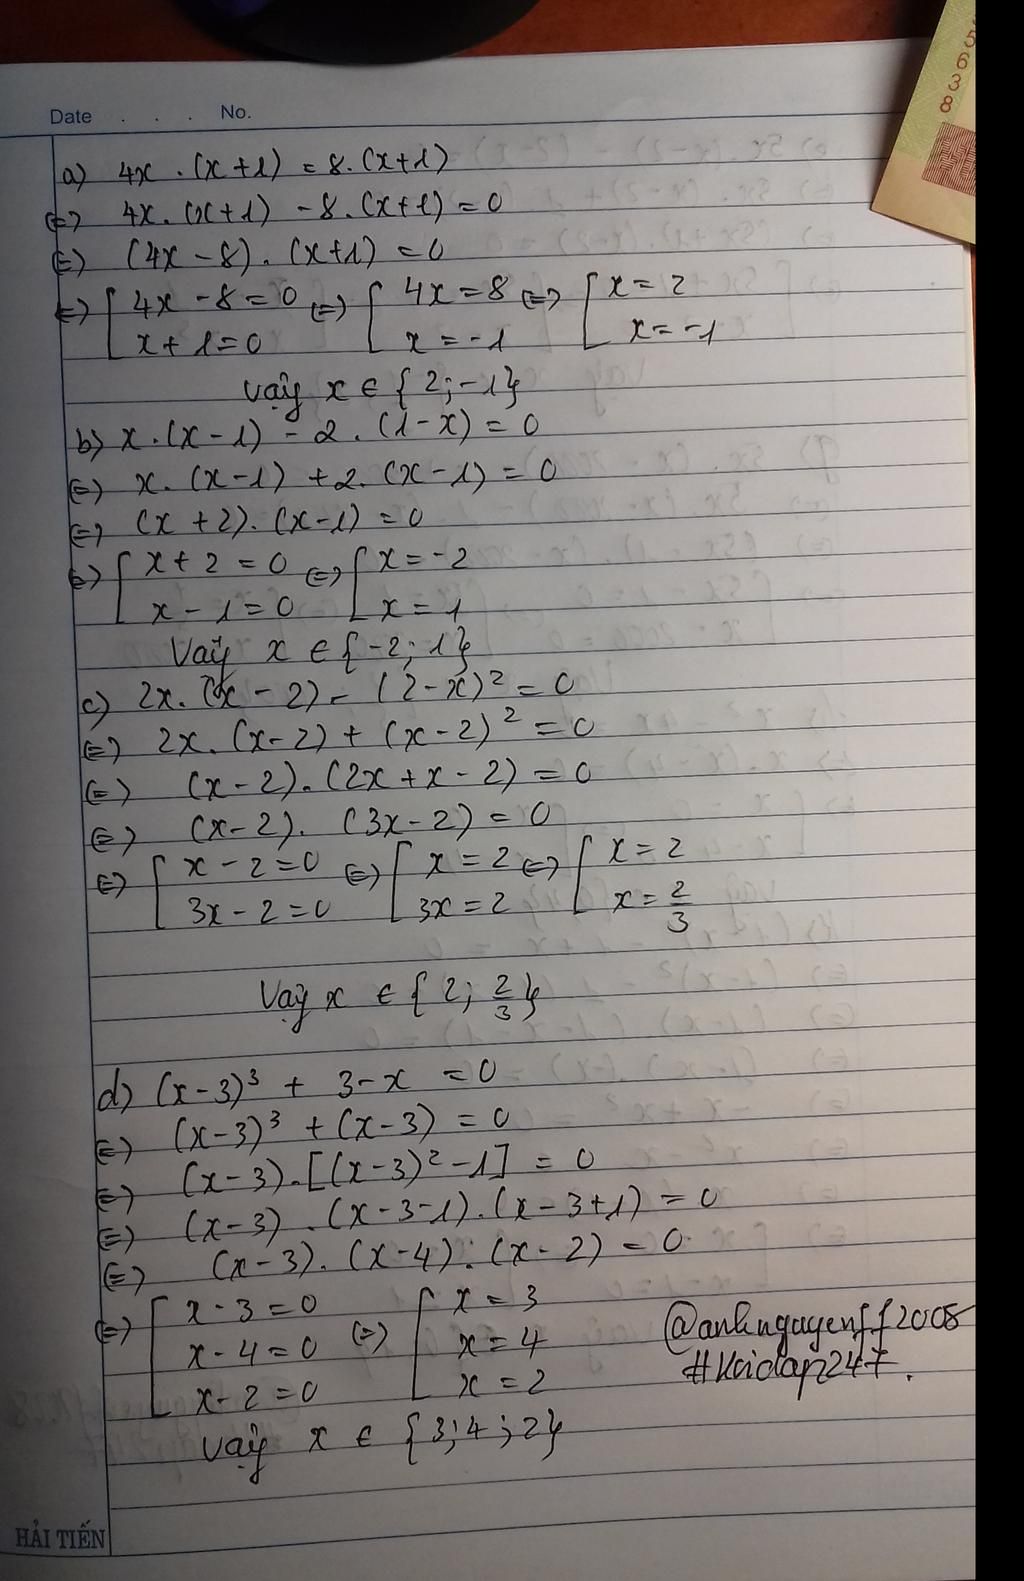 5638
Date . . . No.
a) 4x . (x+1) = 8 . (x+1)
(=) 4x . (x+1) - 8 . (x+1) = 0
(=) (4x - 8) . (x+1) = 0
(=) [ 4x - 8 = 0 (=) [ 4x = 8 (=) [ x = 2
x + 1 = 0 x = -1 x = -1
Vậy x ∈ { 2 ; -1 }
b) x . (x - 1) - 2 . (1 - x) = 0
(=) x . (x - 1) + 2 . (x - 1) = 0
(=) (x + 2) . (x - 1) = 0
(=) [ x + 2 = 0 (=) [ x = -2
x - 1 = 0 x = 1
Vậy x ∈ { -2 ; 1 }
c) 2x . (x - 2) - (2 - x)² = 0
(=) 2x . (x - 2) + (x - 2)² = 0
(=) (x - 2) . (2x + x - 2) = 0
(=) (x - 2) . (3x - 2) = 0
(=) [ x - 2 = 0 (=) [ x = 2 (=) [ x = 2
3x - 2 = 0 3x = 2 x = 2/3
Vậy x ∈ { 2 ; 2/3 }
d) (x - 3)³ + 3 - x = 0
(=) (x - 3)³ + (x - 3) = 0
(=) (x - 3) . [(x - 3)² - 1] = 0
(=) (x - 3) . (x - 3 - 1) . (x - 3 + 1) = 0
(=) (x - 3) . (x - 4) . (x - 2) = 0
(=) [ x - 3 = 0 (=) [ x = 3
x - 4 = 0 x = 4
x - 2 = 0 x = 2
Vậy x ∈ { 3 ; 4 ; 2 }
@anhnguyenff2008
#Hoidap247.
HẢI TIẾN